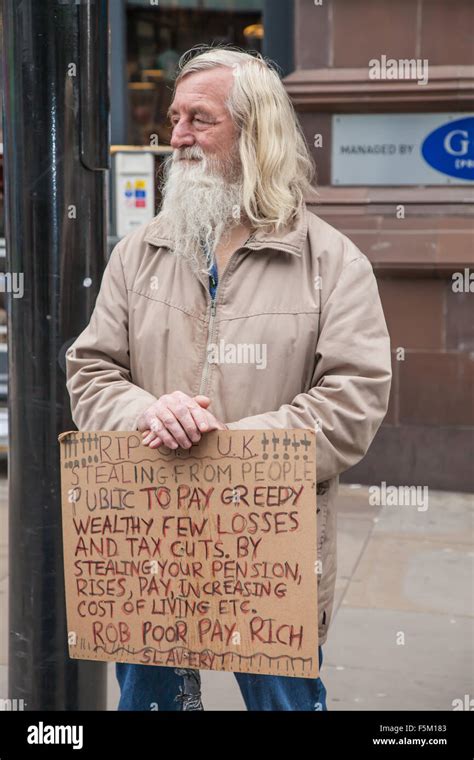 MANAGED BY
G
alamy
!!!! RIP OFF U.K !!!!!!
STEALING FROM PEOPLE
PUBLIC TO PAY GREEDY
WEALTHY FEW LOSSES
AND TAX CUTS. BY
STEALING YOUR PENSION,
RISES, PAY, INCREASING
COST OF LIVING ETC.
ROB POOR PAY RICH
SLAVERY!!!!!!!!!!!
alamy
Image ID: F5M183
www.alamy.com